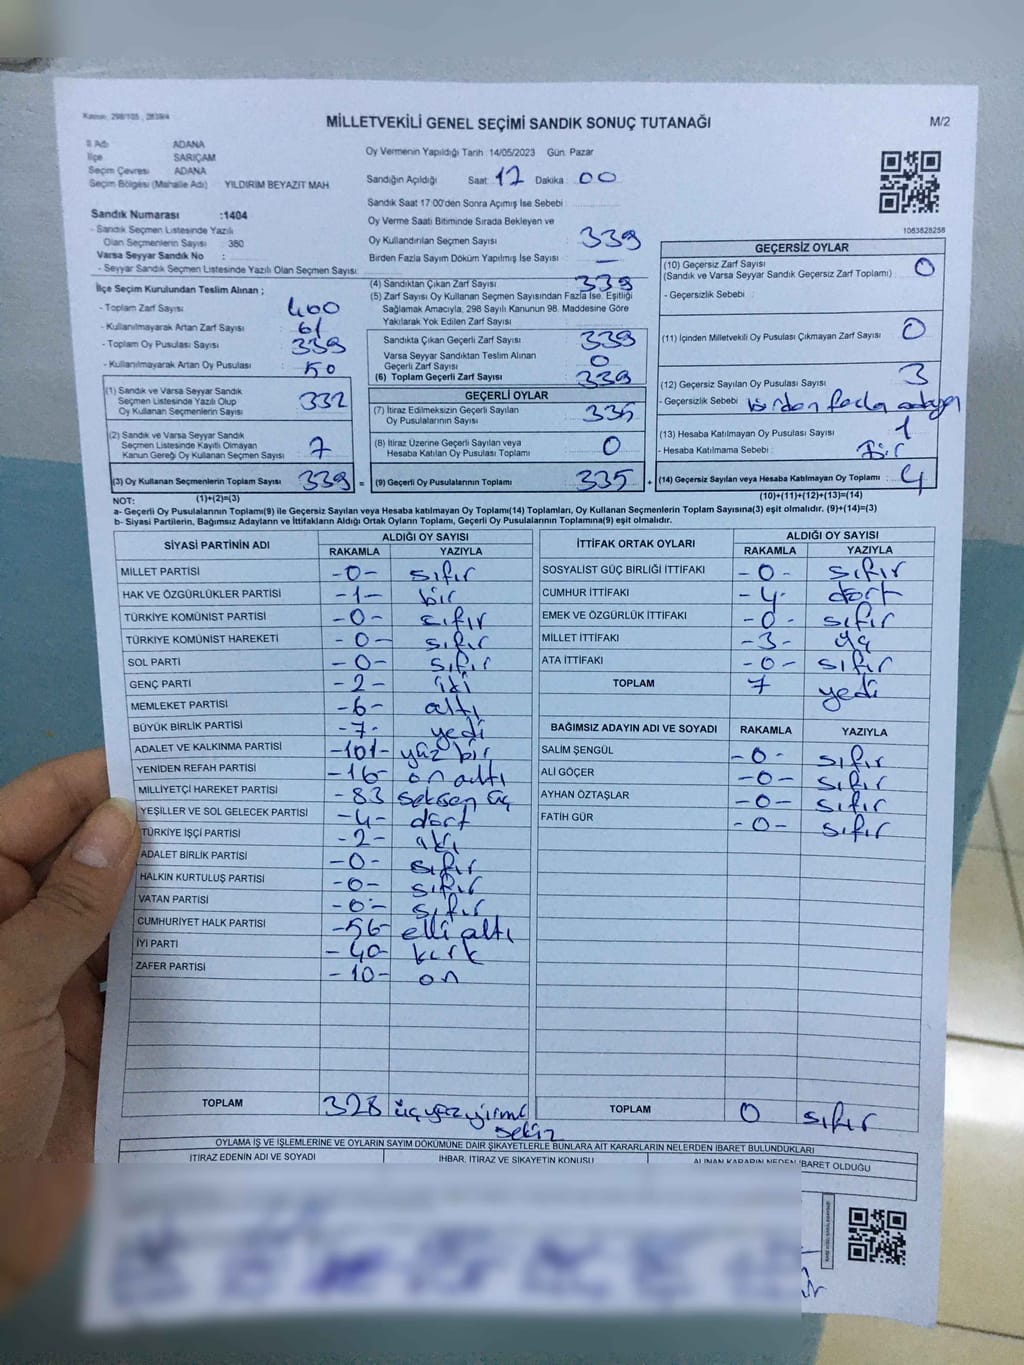 Kanun, 298/105 , 2839/4
MİLLETVEKİLİ GENEL SEÇİMİ SANDIK SONUÇ TUTANAĞI
M/2
İl Adı ADANA
İlçe SARIÇAM
Seçim Çevresi ADANA
Seçim Bölgesi (Mahalle Adı) YILDIRIM BEYAZIT MAH.
Sandık Numarası :1404
- Sandık Seçmen Listesinde Yazılı
Olan Seçmenlerin Sayısı : 380
Varsa Seyyar Sandık No :
- Seyyar Sandık Seçmen Listesinde Yazılı Olan Seçmen Sayısı:
Oy Vermenin Yapıldığı Tarih :14/05/2023 Gün: Pazar
Sandığın Açıldığı Saat: 17 Dakika : 00
Sandık Saat 17:00'den Sonra Açımış İse Sebebi :
Oy Verme Saati Bitiminde Sırada Bekleyen ve
Oy Kullandırılan Seçmen Sayısı : 339
Birden Fazla Sayım Döküm Yapılmış İse Sayısı : —
1063828256
İlçe Seçim Kurulundan Teslim Alınan ;
- Toplam Zarf Sayısı : 400
- Kullanılmayarak Artan Zarf Sayısı : 61
- Toplam Oy Pusulası Sayısı : 339
- Kullanılmayarak Artan Oy Pusulası : 50
(1) Sandık ve Varsa Seyyar Sandık
Seçmen Listesinde Yazılı Olup
Oy Kullanan Seçmenlerin Sayısı : 332
(2) Sandık ve Varsa Seyyar Sandık
Seçmen Listesinde Kayıtlı Olmayan
Kanun Gereği Oy Kullanan Seçmen Sayısı : 7
(3) Oy Kullanan Seçmenlerin Toplam Sayısı : 339
(4) Sandıktan Çıkan Zarf Sayısı : 339
(5) Zarf Sayısı Oy Kullanan Seçmen Sayısından Fazla İse, Eşitliği
Sağlamak Amacıyla, 298 Sayılı Kanunun 98. Maddesine Göre
Yakılarak Yok Edilen Zarf Sayısı :
Sandıkta Çıkan Geçerli Zarf Sayısı : 339
Varsa Seyyar Sandıktan Teslim Alınan
Geçerli Zarf Sayısı : 0
(6) Toplam Geçerli Zarf Sayısı : 339
GEÇERLİ OYLAR
(7) İtiraz Edilmeksizin Geçerli Sayılan
Oy Pusulalarının Sayısı : 335
(8) İtiraz Üzerine Geçerli Sayılan veya
Hesaba Katılan Oy Pusulası Toplamı : 0
= (9) Geçerli Oy Pusulalarının Toplamı : 335 +
GEÇERSİZ OYLAR
(10) Geçersiz Zarf Sayısı : 0
(Sandık ve Varsa Seyyar Sandık Geçersiz Zarf Toplamı)
- Geçersizlik Sebebi :
(11) İçinden Milletvekili Oy Pusulası Çıkmayan Zarf Sayısı : 0
(12) Geçersiz Sayılan Oy Pusulası Sayısı : 3
- Geçersizlik Sebebi : birden fazla adaya
(13) Hesaba Katılmayan Oy Pusulası Sayısı : 1
- Hesaba Katılmama Sebebi : Bir
(14) Geçersiz Sayılan veya Hesaba Katılmayan Oy Toplamı : 4
NOT: (1)+(2)=(3)
(10)+(11)+(12)+(13)=(14)
a- Geçerli Oy Pusulalarının Toplamı(9) ile Geçersiz Sayılan veya Hesaba Katılmayan Oy Toplamı(14) Toplamları, Oy Kullanan Seçmenlerin Toplam Sayısına(3) eşit olmalıdır. (9)+(14)=(3)
b- Siyasi Partilerin, Bağımsız Adayların ve İttifakların Aldığı Ortak Oyların Toplamı, Geçerli Oy Pusulalarının Toplamına(9) eşit olmalıdır.
SİYASİ PARTİNİN ADI ALDIĞI OY SAYISI
RAKAMLA YAZIYLA
MİLLET PARTİSİ -0- sıfır
HAK VE ÖZGÜRLÜKLER PARTİSİ -1- bir
TÜRKİYE KOMÜNİST PARTİSİ -0- sıfır
TÜRKİYE KOMÜNİST HAREKETİ -0- sıfır
SOL PARTİ -0- sıfır
GENÇ PARTİ -2- iki
MEMLEKET PARTİSİ -6- altı
BÜYÜK BİRLİK PARTİSİ -7- yedi
ADALET VE KALKINMA PARTİSİ -101- yüz bir
YENİDEN REFAH PARTİSİ -16- on altı
MİLLİYETÇİ HAREKET PARTİSİ -83 seksen üç
YEŞİLLER VE SOL GELECEK PARTİSİ -4- dört
TÜRKİYE İŞÇİ PARTİSİ -2- iki
ADALET BİRLİK PARTİSİ -0- sıfır
HALKIN KURTULUŞ PARTİSİ -0- sıfır
VATAN PARTİSİ -0- sıfır
CUMHURİYET HALK PARTİSİ -56- elli altı
İYİ PARTİ -40- kırk
ZAFER PARTİSİ -10- on
TOPLAM 328 üçyüz yirmi sekiz
İTTİFAK ORTAK OYLARI ALDIĞI OY SAYISI
RAKAMLA YAZIYLA
SOSYALİST GÜÇ BİRLİĞİ İTTİFAKI -0- sıfır
CUMHUR İTTİFAKI -4- dört
EMEK VE ÖZGÜRLÜK İTTİFAKI -0- sıfır
MİLLET İTTİFAKI -3- üç
ATA İTTİFAKI -0- sıfır
TOPLAM 7 yedi
BAĞIMSIZ ADAYIN ADI VE SOYADI RAKAMLA YAZIYLA
SALİM ŞENGÜL -0- sıfır
ALİ GÖÇER -0- sıfır
AYHAN ÖZTAŞLAR -0- sıfır
FATİH GÜR -0- sıfır
TOPLAM 0 sıfır
OYLAMA İŞ VE İŞLEMLERİNE VE OYLARIN SAYIM DÖKÜMÜNE DAİR ŞİKAYETLERLE BUNLARA AİT KARARLARIN NELERDEN İBARET BULUNDUKLARI
İTİRAZ EDENİN ADI VE SOYADI İHBAR, İTİRAZ VE ŞİKAYETİN KONUSU ALINAN KARARIN NEDEN İBARET OLDUĞU